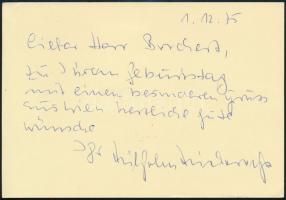 1.12.75
Lieber Herr Borchert,
zu Ihrem Geburtstag
mit einem besonderen Gruss
aus Wien herzliche gute
wünsche
Ihr